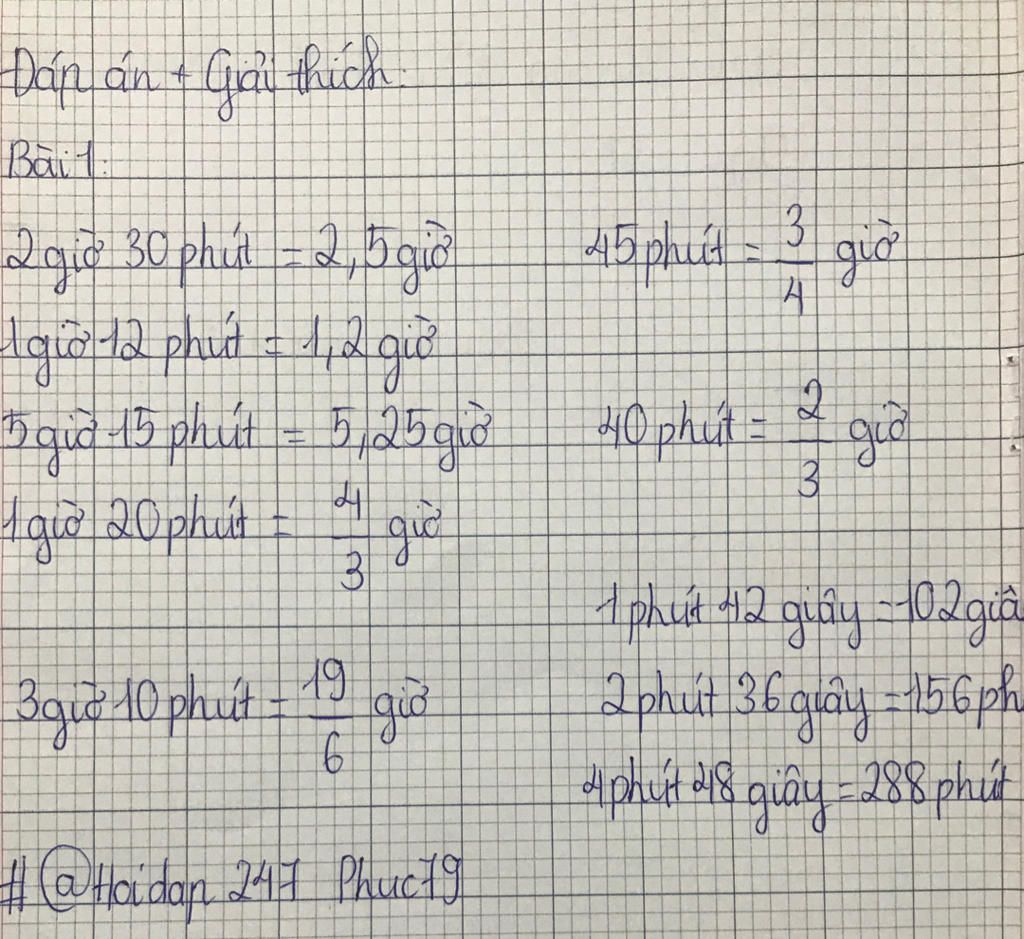 Đáp án + Giải thích:
Bài 1:
2 giờ 30 phút = 2,5 giờ 45 phút = 3/4 giờ
1 giờ 12 phút = 1,2 giờ
5 giờ 15 phút = 5,25 giờ 40 phút = 2/3 giờ
1 giờ 20 phút = 4/3 giờ
1 phút 42 giây = 102 giâ
3 giờ 10 phút = 19/6 giờ 2 phút 36 giây = 156 ph
4 phút 48 giây = 288 phút
# @Hoidap 247 Phuc79